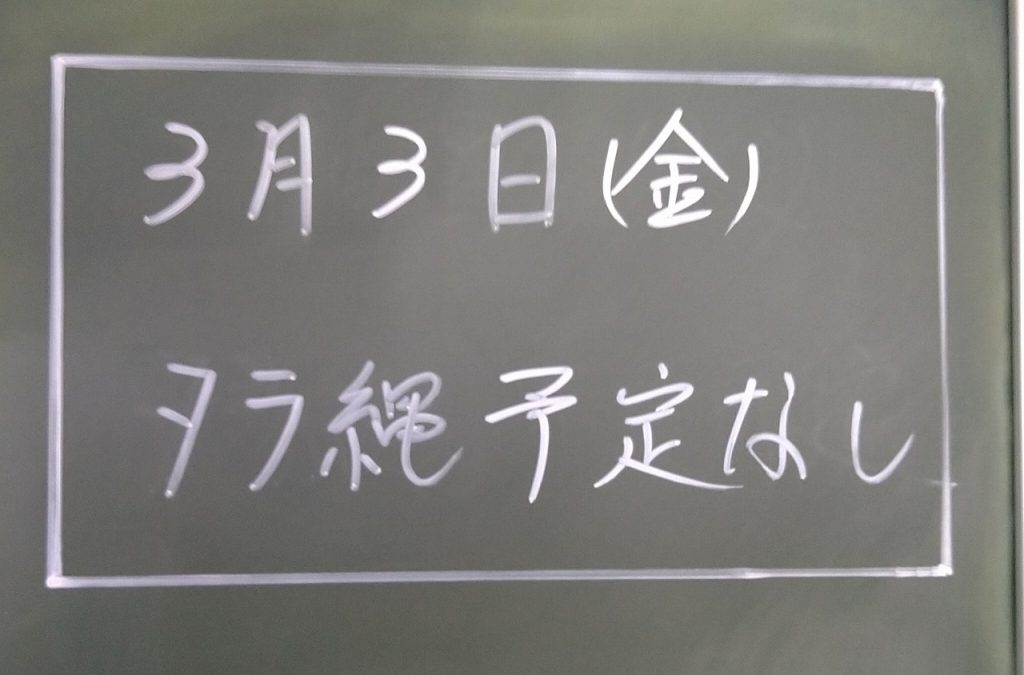 3月3日(金)
タラ縄予定なし